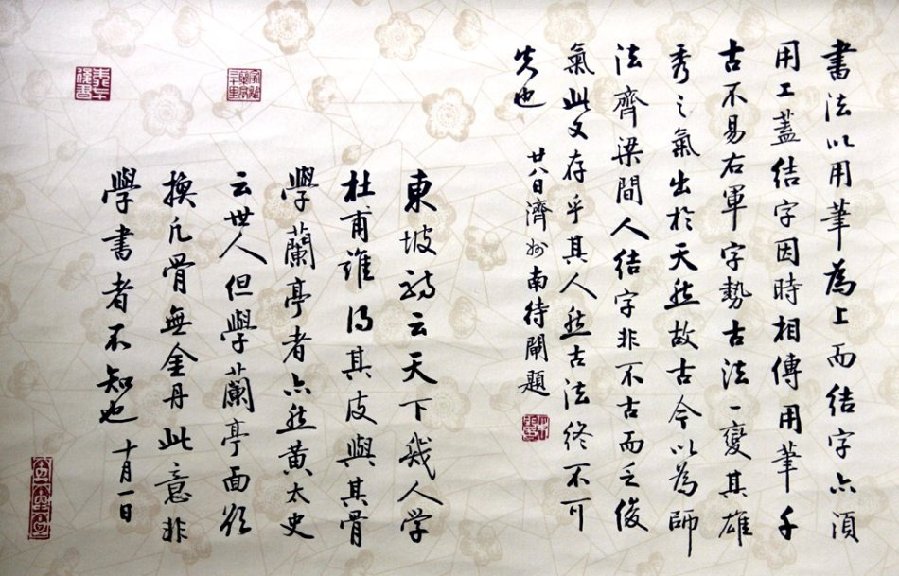 書法以用筆為上而結字亦須
用工蓋結字因時相傳用筆千
古不易右軍字勢古法一變其雄
秀之氣出於天然故古今以為師
法齊梁間人結字非不古而乏俊
氣此又存乎其人然古法終不可
失也
廿八日濟州南待閘題
東坡詩云天下幾人學
杜甫誰得其皮與其骨
學蘭亭者亦然黃太史
云世人但學蘭亭面欲
換凡骨無金丹此意非
學書者不知也 十月一日